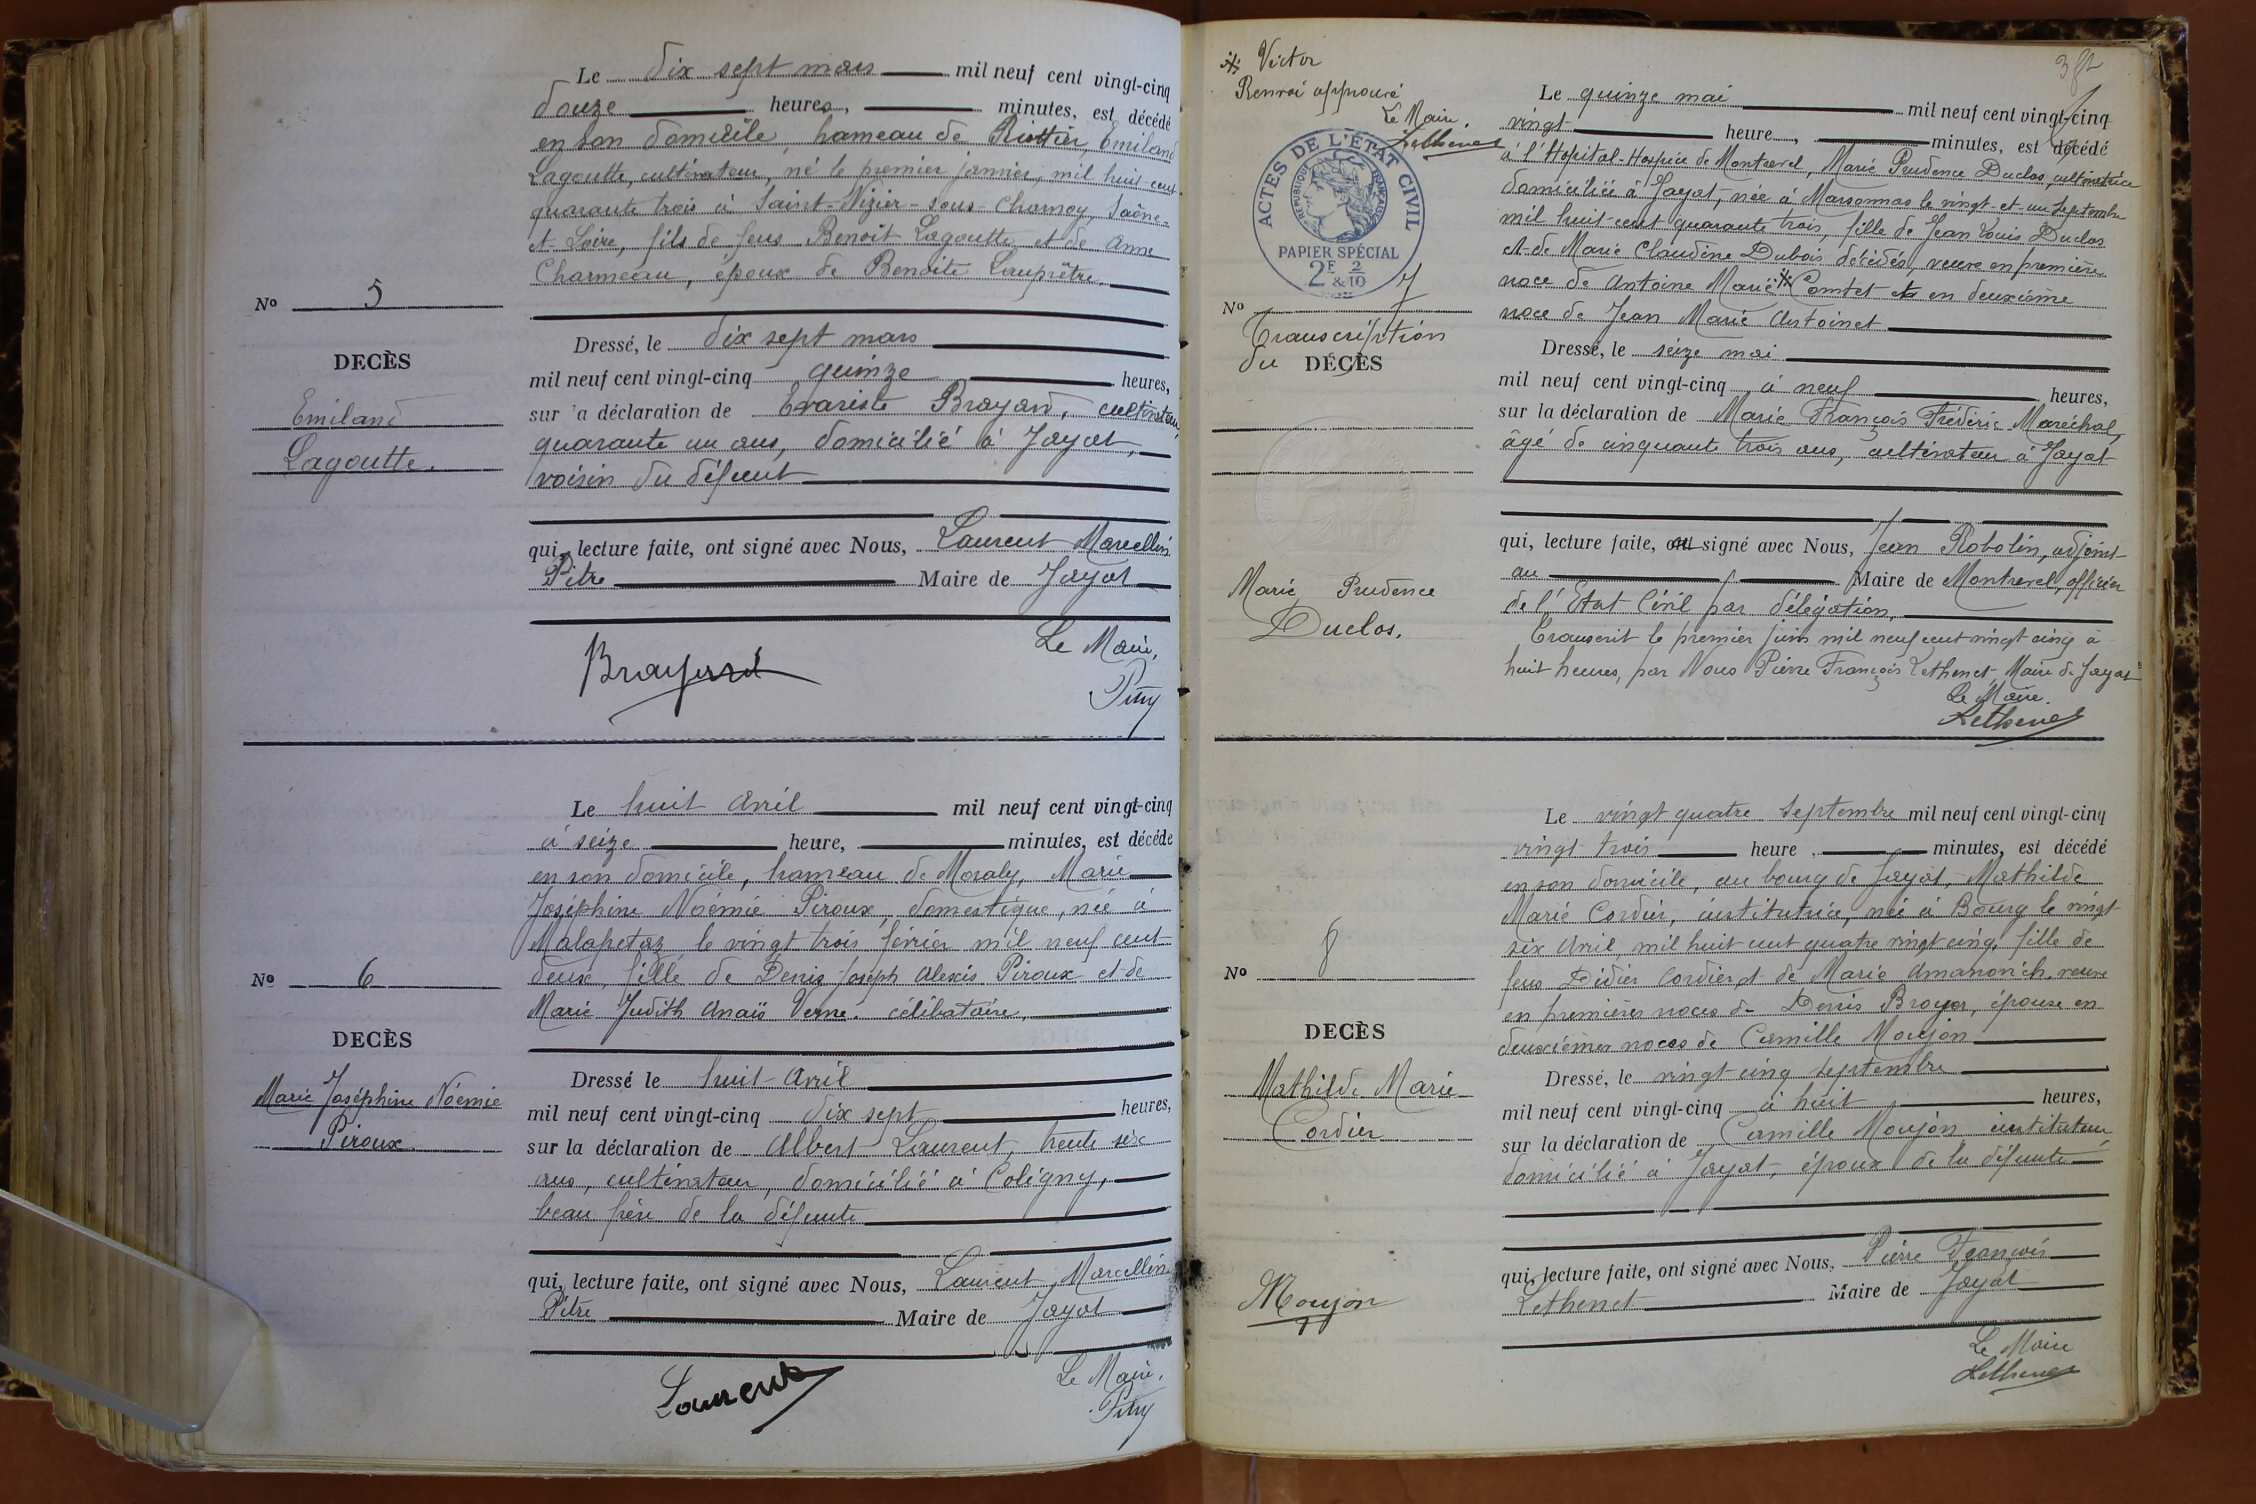 Le dix sept mars mil neuf cent vingt-cinq
douze heures, minutes, est décédé
en son domicile, hameau de Emiland
Lagoutte, cultivateur, né le premier janvier, mil huit cent
quarante trois à Saint-Nizier-sous-Charmoy, Saône-
et-Loire, fils de feus Benoit Lagoutte et de Anne
Charmeau, époux de Benoite Lauprêtre.
No 5
DECÈS
Emiland
Lagoutte.
Dressé, le dix sept mars
mil neuf cent vingt-cinq quinze heures,
sur la déclaration de Evariste Brayard, cultivateur,
quarante un ans, domicilié à Jayat,
voisin du défunt
qui, lecture faite, ont signé avec Nous, Laurent Marcellin
Pitre Maire de Jayat
Le Maire,
Brayard
Pitre
Le huit Avril mil neuf cent vingt-cinq
à seize heure, minutes, est décédé
en son domicile, hameau de Moraly, Marie
Joséphine Noémie Piroux, domestique, née à
Malafretaz le vingt trois février mil neuf cent
deux, fille de Denis Joseph Alexis Piroux et de
Marie Judith Anaïs Verne. célibataire.
No 6
DECÈS
Marie Joséphine Noémie
Piroux
Dressé le huit Avril
mil neuf cent vingt-cinq dix sept heures,
sur la déclaration de Albert Laurent, trente six
ans, cultivateur, domicilié à Coligny,
beau frère de la défunte
qui, lecture faite, ont signé avec Nous, Laurent, Marcellin
Pitre Maire de Jayat
Le Maire,
Laurent
Pitre
Victor
Renvoi approuvé
Le Maire
Lethenet
382
ACTES DE L'ÉTAT CIVIL
RÉPUBLIQUE FRANÇAISE
PAPIER SPÉCIAL
2F & 2/10
Le quinze mai mil neuf cent vingt-cinq
vingt heure, minutes, est décédé
à l'Hopital-Hospice de Montrevel, Marie Prudence Duclos, cultivatrice
domiciliée à Jayat, née à Marsonnas le vingt-et-un Septembre
mil huit cent quarante trois, fille de Jean Louis Duclos
et de Marie Claudine Dubois décédés, veuve en première
noce de Antoine Marie Comtet et en deuxième
noce de Jean Marie Antoinet
No 7
Transcription
du DÉCÈS
Marie Prudence
Duclos.
Dressé, le seize mai
mil neuf cent vingt-cinq à neuf heures,
sur la déclaration de Marie François Frédéric Maréchal,
âgé de cinquante trois ans, cultivateur à Jayat
qui, lecture faite, ont signé avec Nous, Jean Robolin, adjoint
au Maire de Montrevel, officier
de l'Etat Civil par délégation,
Transcrit le premier juin mil neuf cent vingt cinq à
huit heures, par Nous Pierre François Lethenet, Maire de Jayat
Le Maire.
Lethenet
Le vingt quatre Septembre mil neuf cent vingt-cinq
vingt trois heure, minutes, est décédé
en son domicile, au bourg de Jayat, Mathilde
Marie Cordier, institutrice, née à Bourg le vingt
six Avril mil huit cent quatre vingt cinq, fille de
feus Didier Cordier et de Marie Amanovich, veuve
en premières noces de Denis Broyer, épouse en
deuxièmes noces de Camille Moujon
No 8
DECÈS
Mathilde Marie
Cordier
Dressé, le vingt cinq septembre
mil neuf cent vingt-cinq à huit heures,
sur la déclaration de Camille Moujon, instituteur,
domicilié à Jayat, époux de la défunte
qui, lecture faite, ont signé avec Nous, Pierre François
Lethenet Maire de Jayat
Moujon
Le Maire
Lethenet